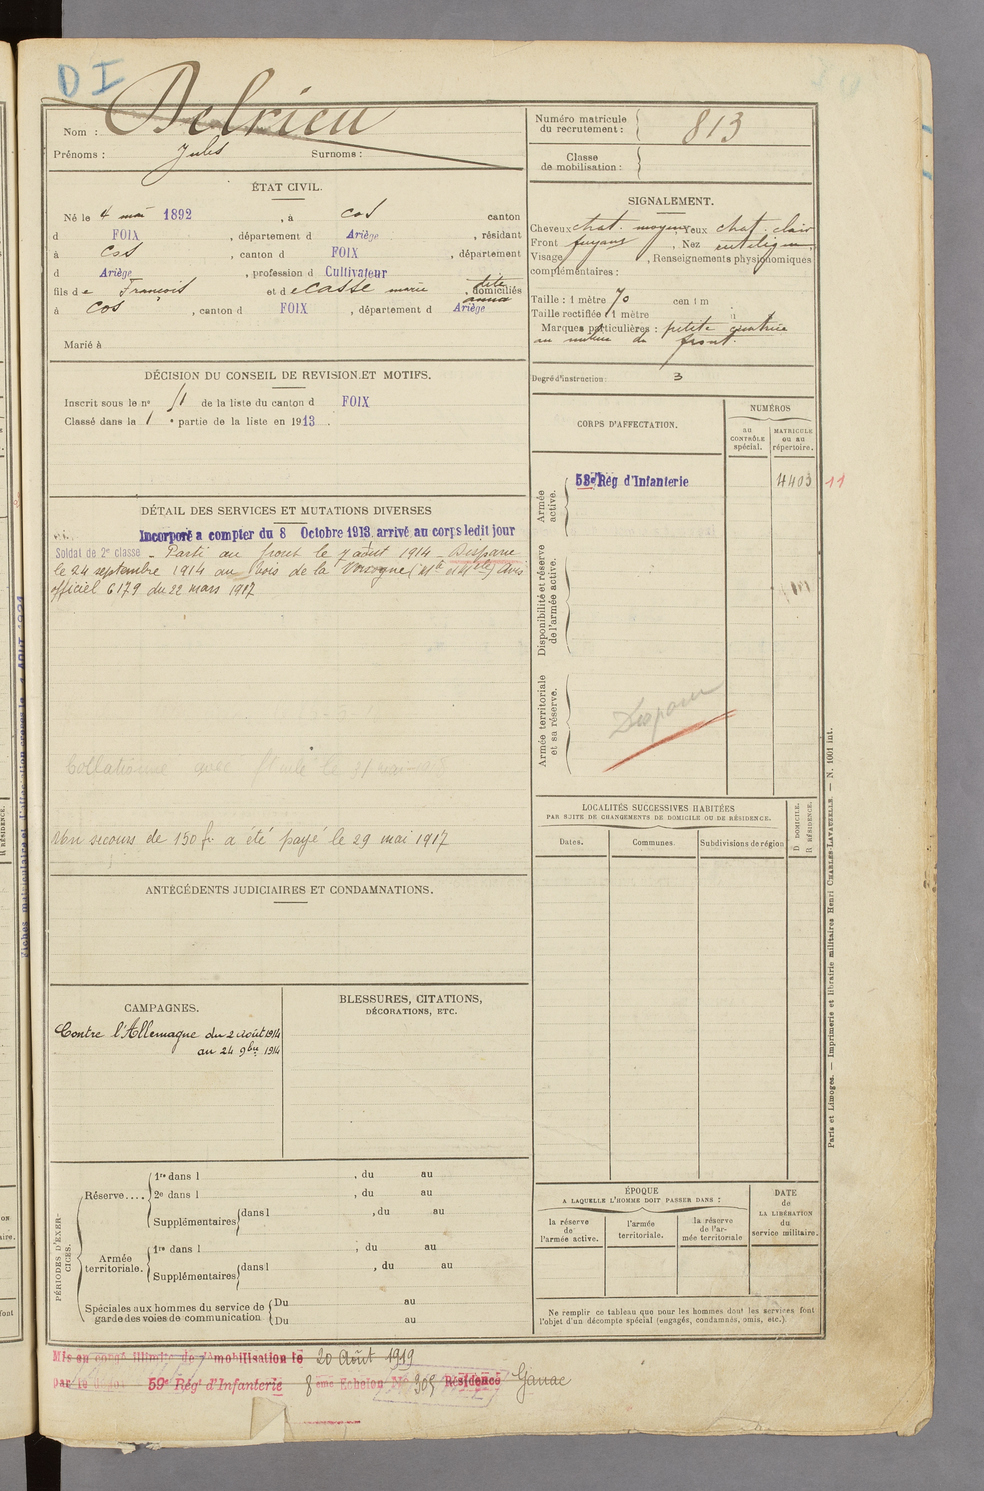 DI
Nom : Delrieu
Prénoms : Jules Surnoms :
Numéro matricule du recrutement : 813
Classe de mobilisation :
ÉTAT CIVIL.
Né le 4 mai 1892, à Cos canton
d FOIX, département d Ariège, résidant
à Cos, canton d FOIX, département
d Ariège, profession d Cultivateur
fils de François et de Casse marie dite anna, domiciliés
à Cos, canton d FOIX, département d Ariège
Marié à
SIGNALEMENT.
Cheveux chat. moyen Yeux chat. clair
Front fuyant, Nez
Visage, Renseignements physionomiques
complémentaires :
Taille : 1 mètre 70 centim
Taille rectifiée 1 mètre
Marques particulières : petite
au milieu du front.
Degré d'instruction : 3
DÉCISION DU CONSEIL DE REVISION ET MOTIFS.
Inscrit sous le n° 51 de la liste du canton d FOIX
Classé dans la 1e partie de la liste en 1913.
CORPS D'AFFECTATION.
NUMÉROS
au CONTRÔLE spécial.
MATRICULE ou au répertoire.
Armée active.
59e Rég d'Infanterie 4403 11
Disponibilité et réserve de l'armée active.
Armée territoriale et sa réserve.
Disparu
DÉTAIL DES SERVICES ET MUTATIONS DIVERSES
Incorporé a compter du 8 Octobre 1913, arrivé au corps ledit jour
Soldat de 2e classe - Parti au front le 7 août 1914 - Disparu
le 24 septembre 1914 au bois de la Voisogne (Mthe et Mlle) Avis
officiel G 179 du 22 mars 1917
Un secours de 150 fr. a été payé le 29 mai 1917
LOCALITÉS SUCCESSIVES HABITÉES
PAR SUITE DE CHANGEMENTS DE DOMICILE OU DE RÉSIDENCE.
Dates. Communes. Subdivisions de région
D DOMICILE. R RÉSIDENCE.
ANTÉCÉDENTS JUDICIAIRES ET CONDAMNATIONS.
CAMPAGNES.
Contre l'Allemagne du 2 Août 1914
au 24 9bre 1914
BLESSURES, CITATIONS,
DÉCORATIONS, ETC.
PÉRIODES D'EXERCICES.
Réserve....
1re dans l , du au
2e dans l , du au
Supplémentaires dans l , du au
Armée territoriale.
1re dans l , du au
Supplémentaires dans l , du au
Spéciales aux hommes du service de garde des voies de communication
Du au
Du au
ÉPOQUE
A LAQUELLE L'HOMME DOIT PASSER DANS :
la réserve de l'armée active.
l'armée territoriale.
la réserve de l'armée territoriale
DATE de LA LIBÉRATION du service militaire.
Ne remplir ce tableau que pour les hommes dont les services font
l'objet d'un décompte spécial (engagés, condamnés, omis, etc.)
Mis en congé illimité de démobilisation le 20 Août 1919
Par le dépôt 59e Rég' d'Infanterie 8 ème Echelon No 305 Résidence Ganac
Paris et Limoges. — Imprimerie et librairie militaires Henri CHARLES-LAVAUZELLE. — N. 1001 int.